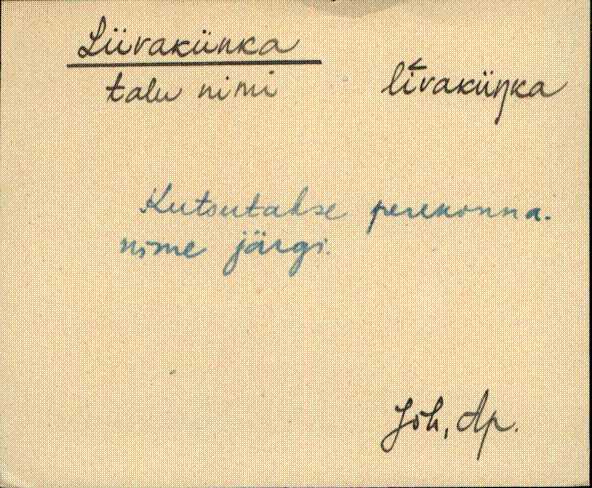 Liivakünka
talu nimi
lìvaküŋka
Kutsutakse perekonna-
nime järgi.
Jõh, Ap.